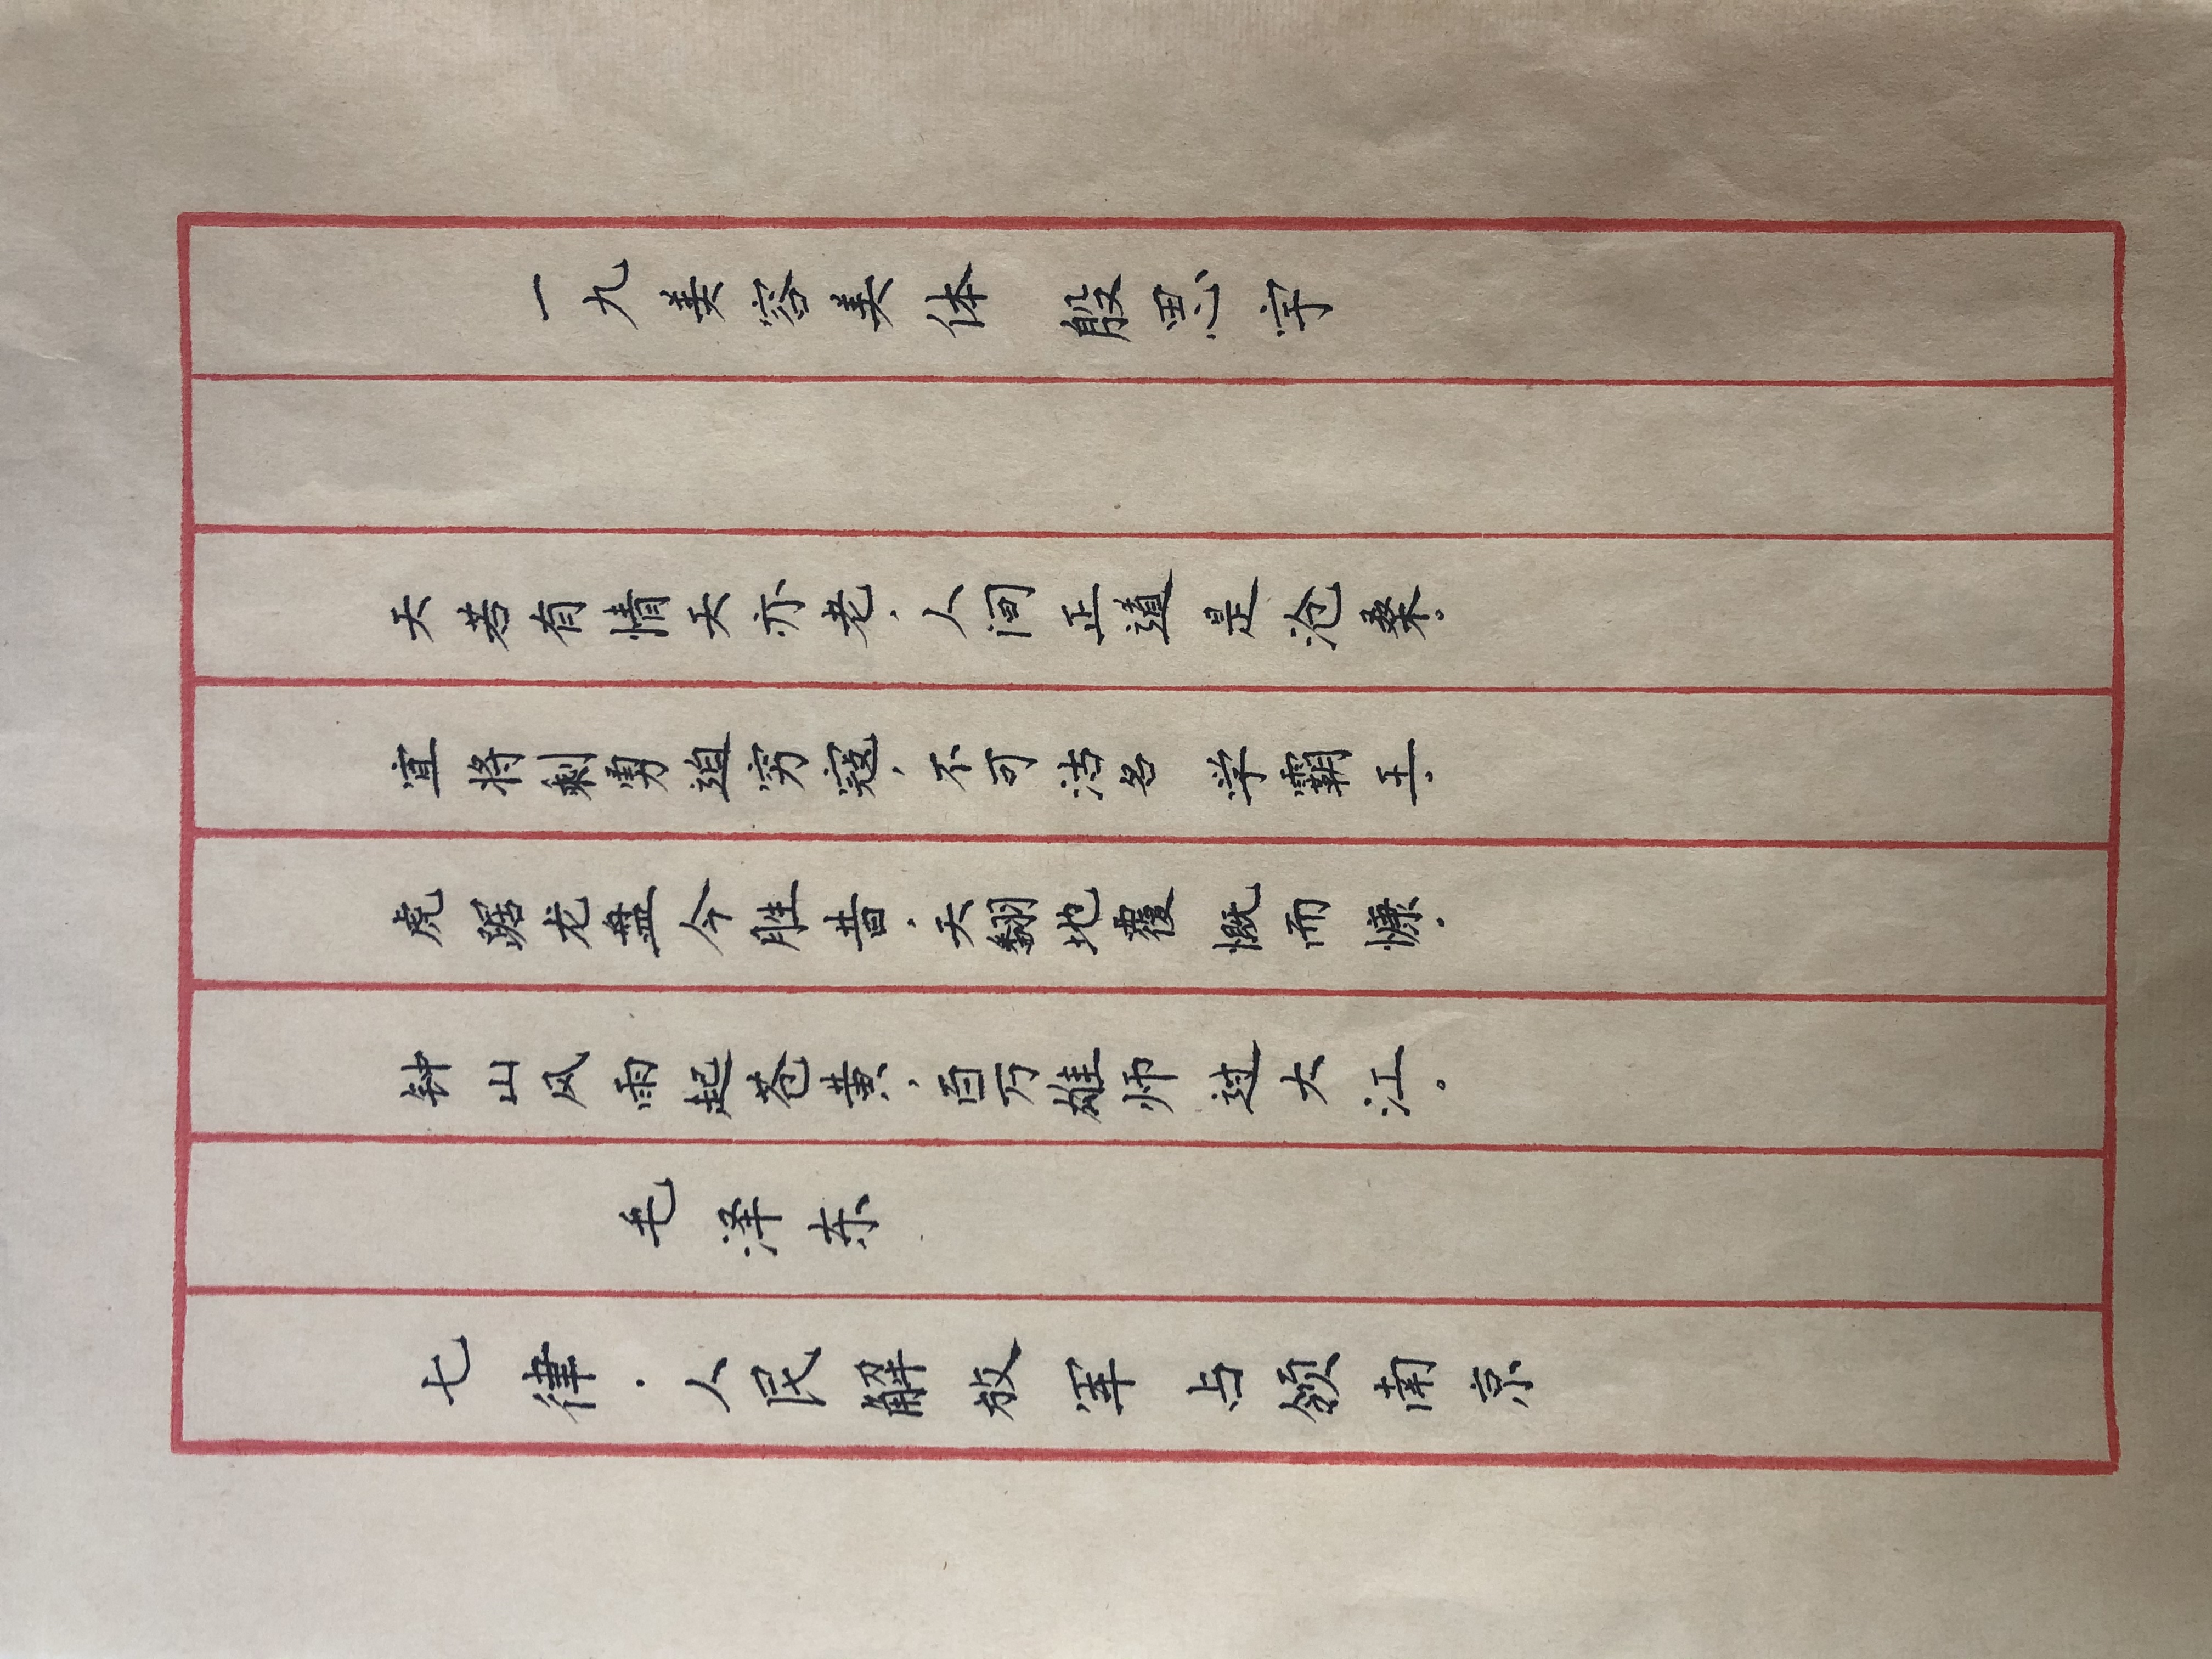 七律·人民解放军占领南京
毛泽东
钟山风雨起苍黄，百万雄师过大江。
虎踞龙盘今胜昔，天翻地覆慨而慷。
宜将剩勇追穷寇，不可沽名学霸王。
天若有情天亦老，人间正道是沧桑。
一九美容美体 殷思宇